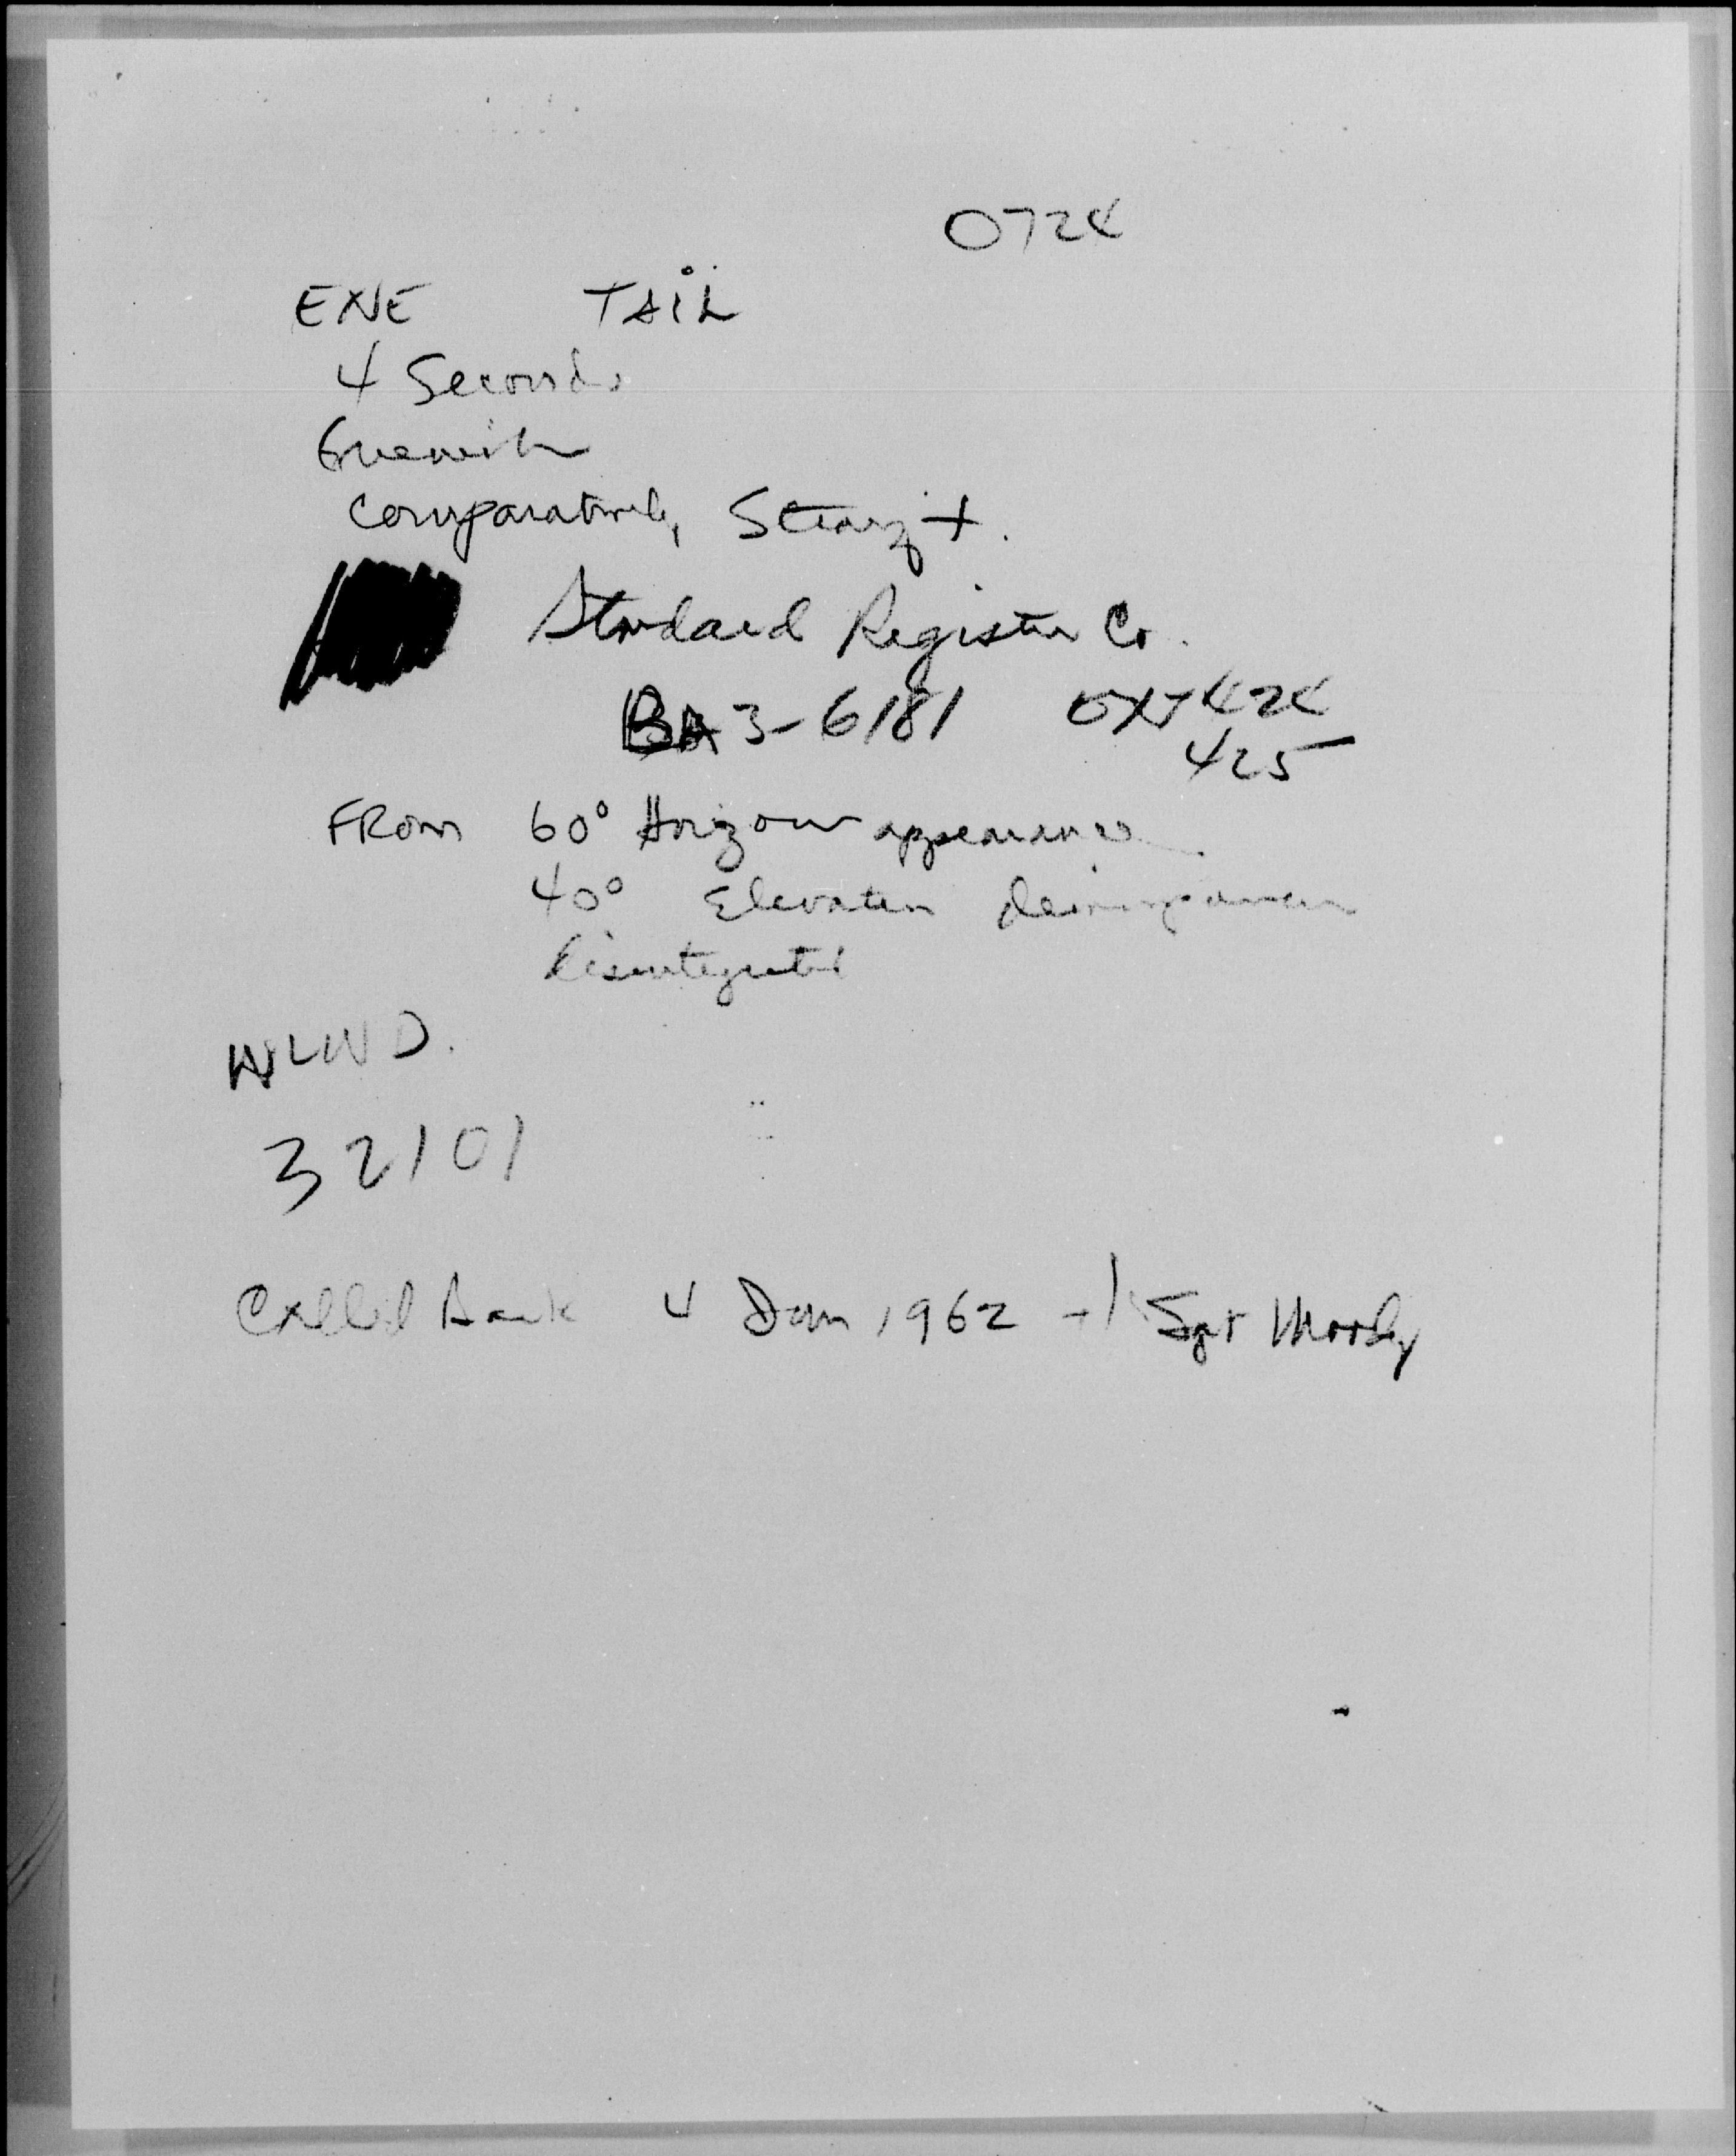 0724
ENE TAIL
4 Seconds
Greenish
Comparatively Straight.
Standard Register Co.
BA3-6181 EXT 424
425
FROM 60° Horizon appearance
40° Elevation disappearance
disintegrated
WLWD.
32101
Called Back 4 Jan 1962 Sgt Moody